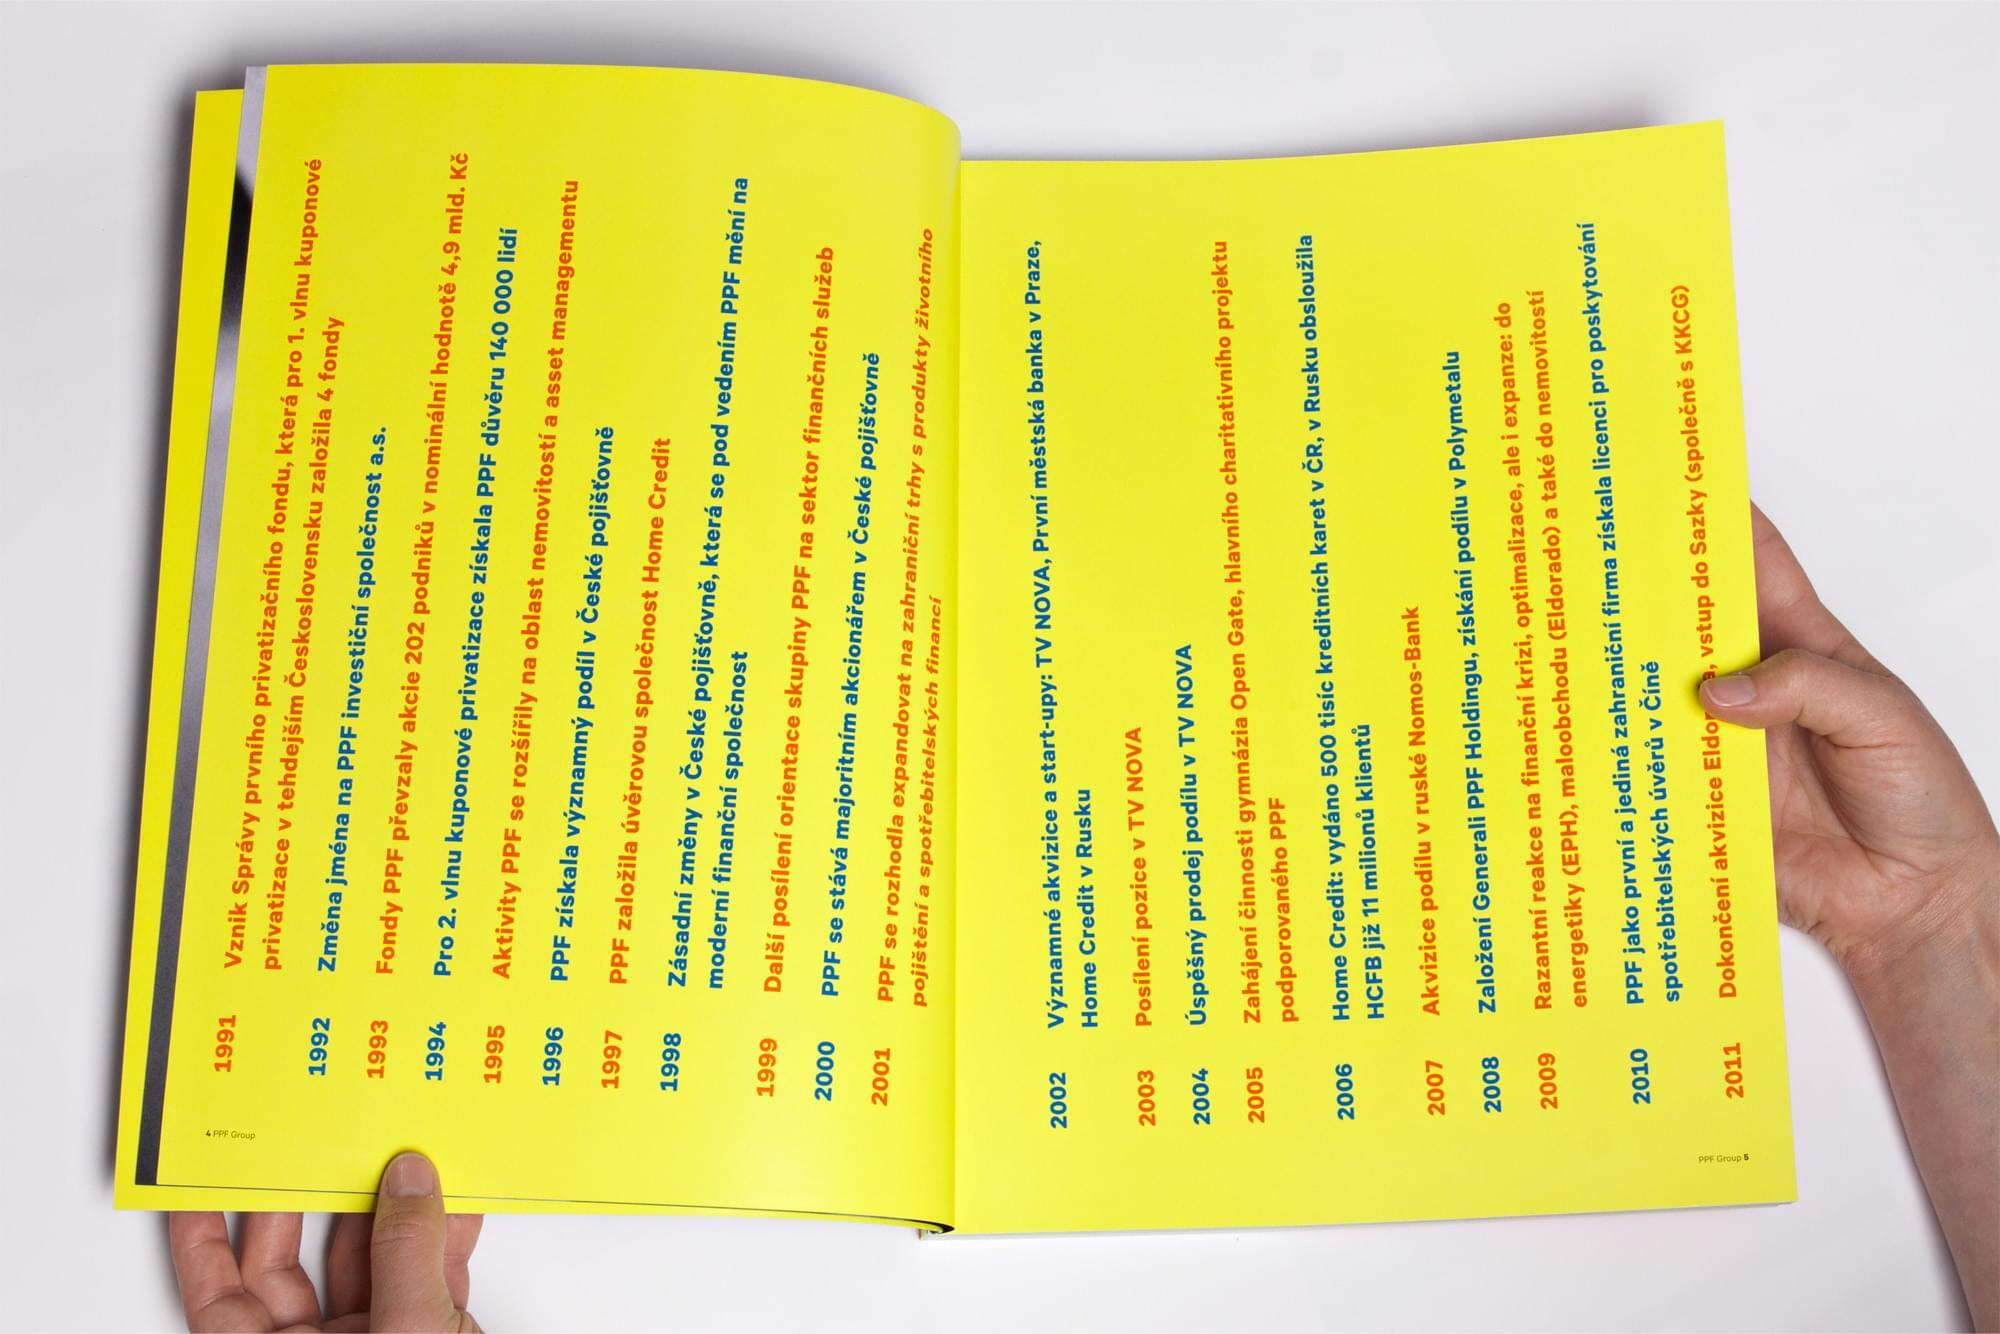 1991 Vznik Správy prvního privatizačního fondu, která pro 1. vlnu kuponové
privatizace v tehdejším Československu založila 4 fondy
1992 Změna jména na PPF investiční společnost a.s.
1993 Fondy PPF převzaly akcie 202 podniků v nominální hodnotě 4,9 mld. Kč
1994 Pro 2. vlnu kuponové privatizace získala PPF důvěru 140 000 lidí
1995 Aktivity PPF se rozšířily na oblast nemovitostí a asset managementu
1996 PPF získala významný podíl v České pojišťovně
1997 PPF založila úvěrovou společnost Home Credit
1998 Zásadní změny v České pojišťovně, která se pod vedením PPF mění na
moderní finanční společnost
1999 Další posílení orientace skupiny PPF na sektor finančních služeb
2000 PPF se stává majoritním akcionářem v České pojišťovně
2001 PPF se rozhodla expandovat na zahraniční trhy s produkty životního
pojištění a spotřebitelských financí
4 PPF Group
2002 Významné akvizice a start-upy: TV NOVA, První městská banka v Praze,
Home Credit v Rusku
2003 Posílení pozice v TV NOVA
2004 Úspěšný prodej podílu v TV NOVA
2005 Zahájení činnosti gymnázia Open Gate, hlavního charitativního projektu
podporovaného PPF
2006 Home Credit: vydáno 500 tisíc kreditních karet v ČR, v Rusku obsloužila
HCFB již 11 milionů klientů
2007 Akvizice podílu v ruské Nomos-Bank
2008 Založení Generali PPF Holdingu, získání podílu v Polymetalu
2009 Razantní reakce na finanční krizi, optimalizace, ale i expanze: do
energetiky (EPH), maloobchodu (Eldorado) a také do nemovitostí
2010 PPF jako první a jediná zahraniční firma získala licenci pro poskytování
spotřebitelských úvěrů v Číně
2011 Dokončení akvizice , vstup do Sazky (společně s KKCG)
PPF Group 5